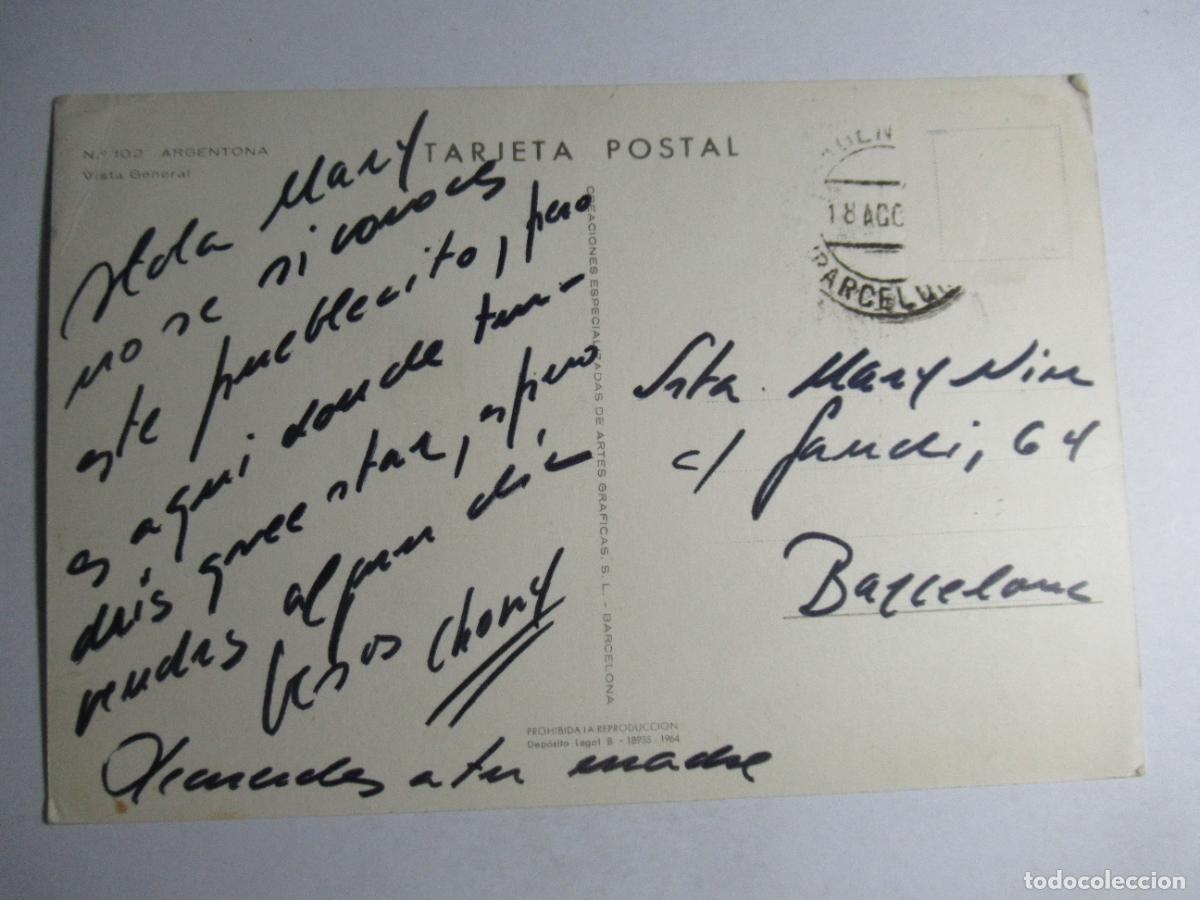 N.º 102 ARGENTONA
Vista General
TARJETA POSTAL
Hola Mary
no se si conoces
este pueblecito, pero
es aqui donde ten-
dais que estar, espero
vendras algun dia,
besos Chony
Recuerdos a tu madre
CREACIONES ESPECIALIZADAS DE ARTES GRAFICAS. S. L. - BARCELONA
PROHIBIDA LA REPRODUCCION
Depósito Legal B - 18935 - 1964
18 AGO
BARCELO
Srta. Mary Nin
c/ Gaudi, 64
Barcelona
todocoleccion